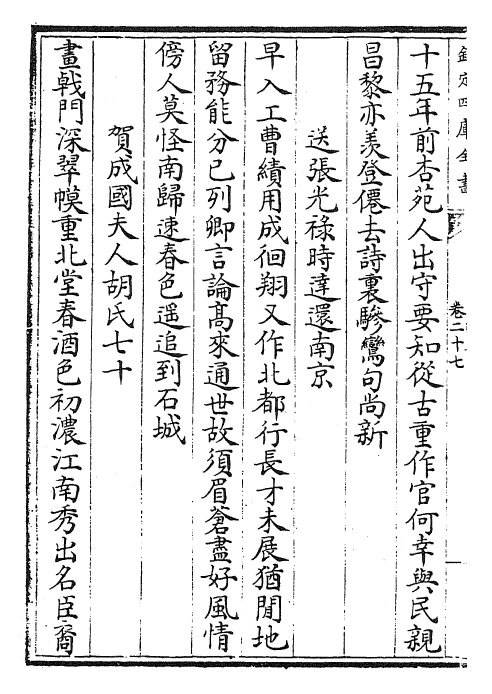 欽定四庫全書
卷二十七
十五年前杏苑人出守要知從古重作官何幸與民親
昌黎亦羨登僊去詩裏驂鸞句尚新
送張光祿時達還南京
早入工曹績用成徊翔又作北都行長才未展猶閒地
留務能分已列卿言論髙來通世故須眉蒼盡好風情
傍人莫怪南歸速春色遥追到石城
賀成國夫人胡氏七十
畫戟門深翠幙重北堂春酒色初濃江南秀出名臣裔